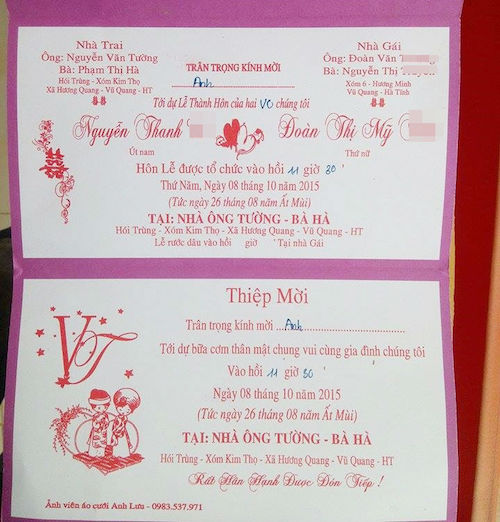 Nhà Trai
Ông: Nguyễn Văn Tường
Bà: Phạm Thị Hà
Hói Trùng - Xóm Kim Thọ
Xã Hương Quang - Vũ Quang - HT
TRÂN TRỌNG KÍNH MỜI
Anh
Nhà Gái
Ông: Đoàn Văn
Bà: Nguyễn Thị
Xóm 6 - Hương Minh
Vũ Quang - Hà Tĩnh
Tới dự Lễ Thành Hôn của hai VC chúng tôi
Nguyễn Thanh
Út nam
Đoàn Thị Mỹ
Thứ nữ
Hôn Lễ được tổ chức vào hồi 11 giờ 30 '
Thứ Năm, Ngày 08 tháng 10 năm 2015
(Tức ngày 26 tháng 08 năm Ất Mùi)
TẠI: NHÀ ÔNG TƯỜNG - BÀ HÀ
Hói Trùng - Xóm Kim Thọ - Xã Hương Quang - Vũ Quang - HT
Lễ rước dâu vào hồi giờ ' Tại nhà Gái
Thiệp Mời
Trân trọng kính mời ...Anh...............................
Tới dự bữa cơm thân mật chung vui cùng gia đình chúng tôi
Vào hồi 11 giờ 30 '
Ngày 08 tháng 10 năm 2015
(Tức ngày 26 tháng 08 năm Ất Mùi)
TẠI: NHÀ ÔNG TƯỜNG - BÀ HÀ
Hói Trùng - Xóm Kim Thọ - Xã Hương Quang - Vũ Quang - HT
Rất Hân Hạnh Được Đón Tiếp !
VT
Ảnh viện áo cưới Anh Lưu - 0983.537.971